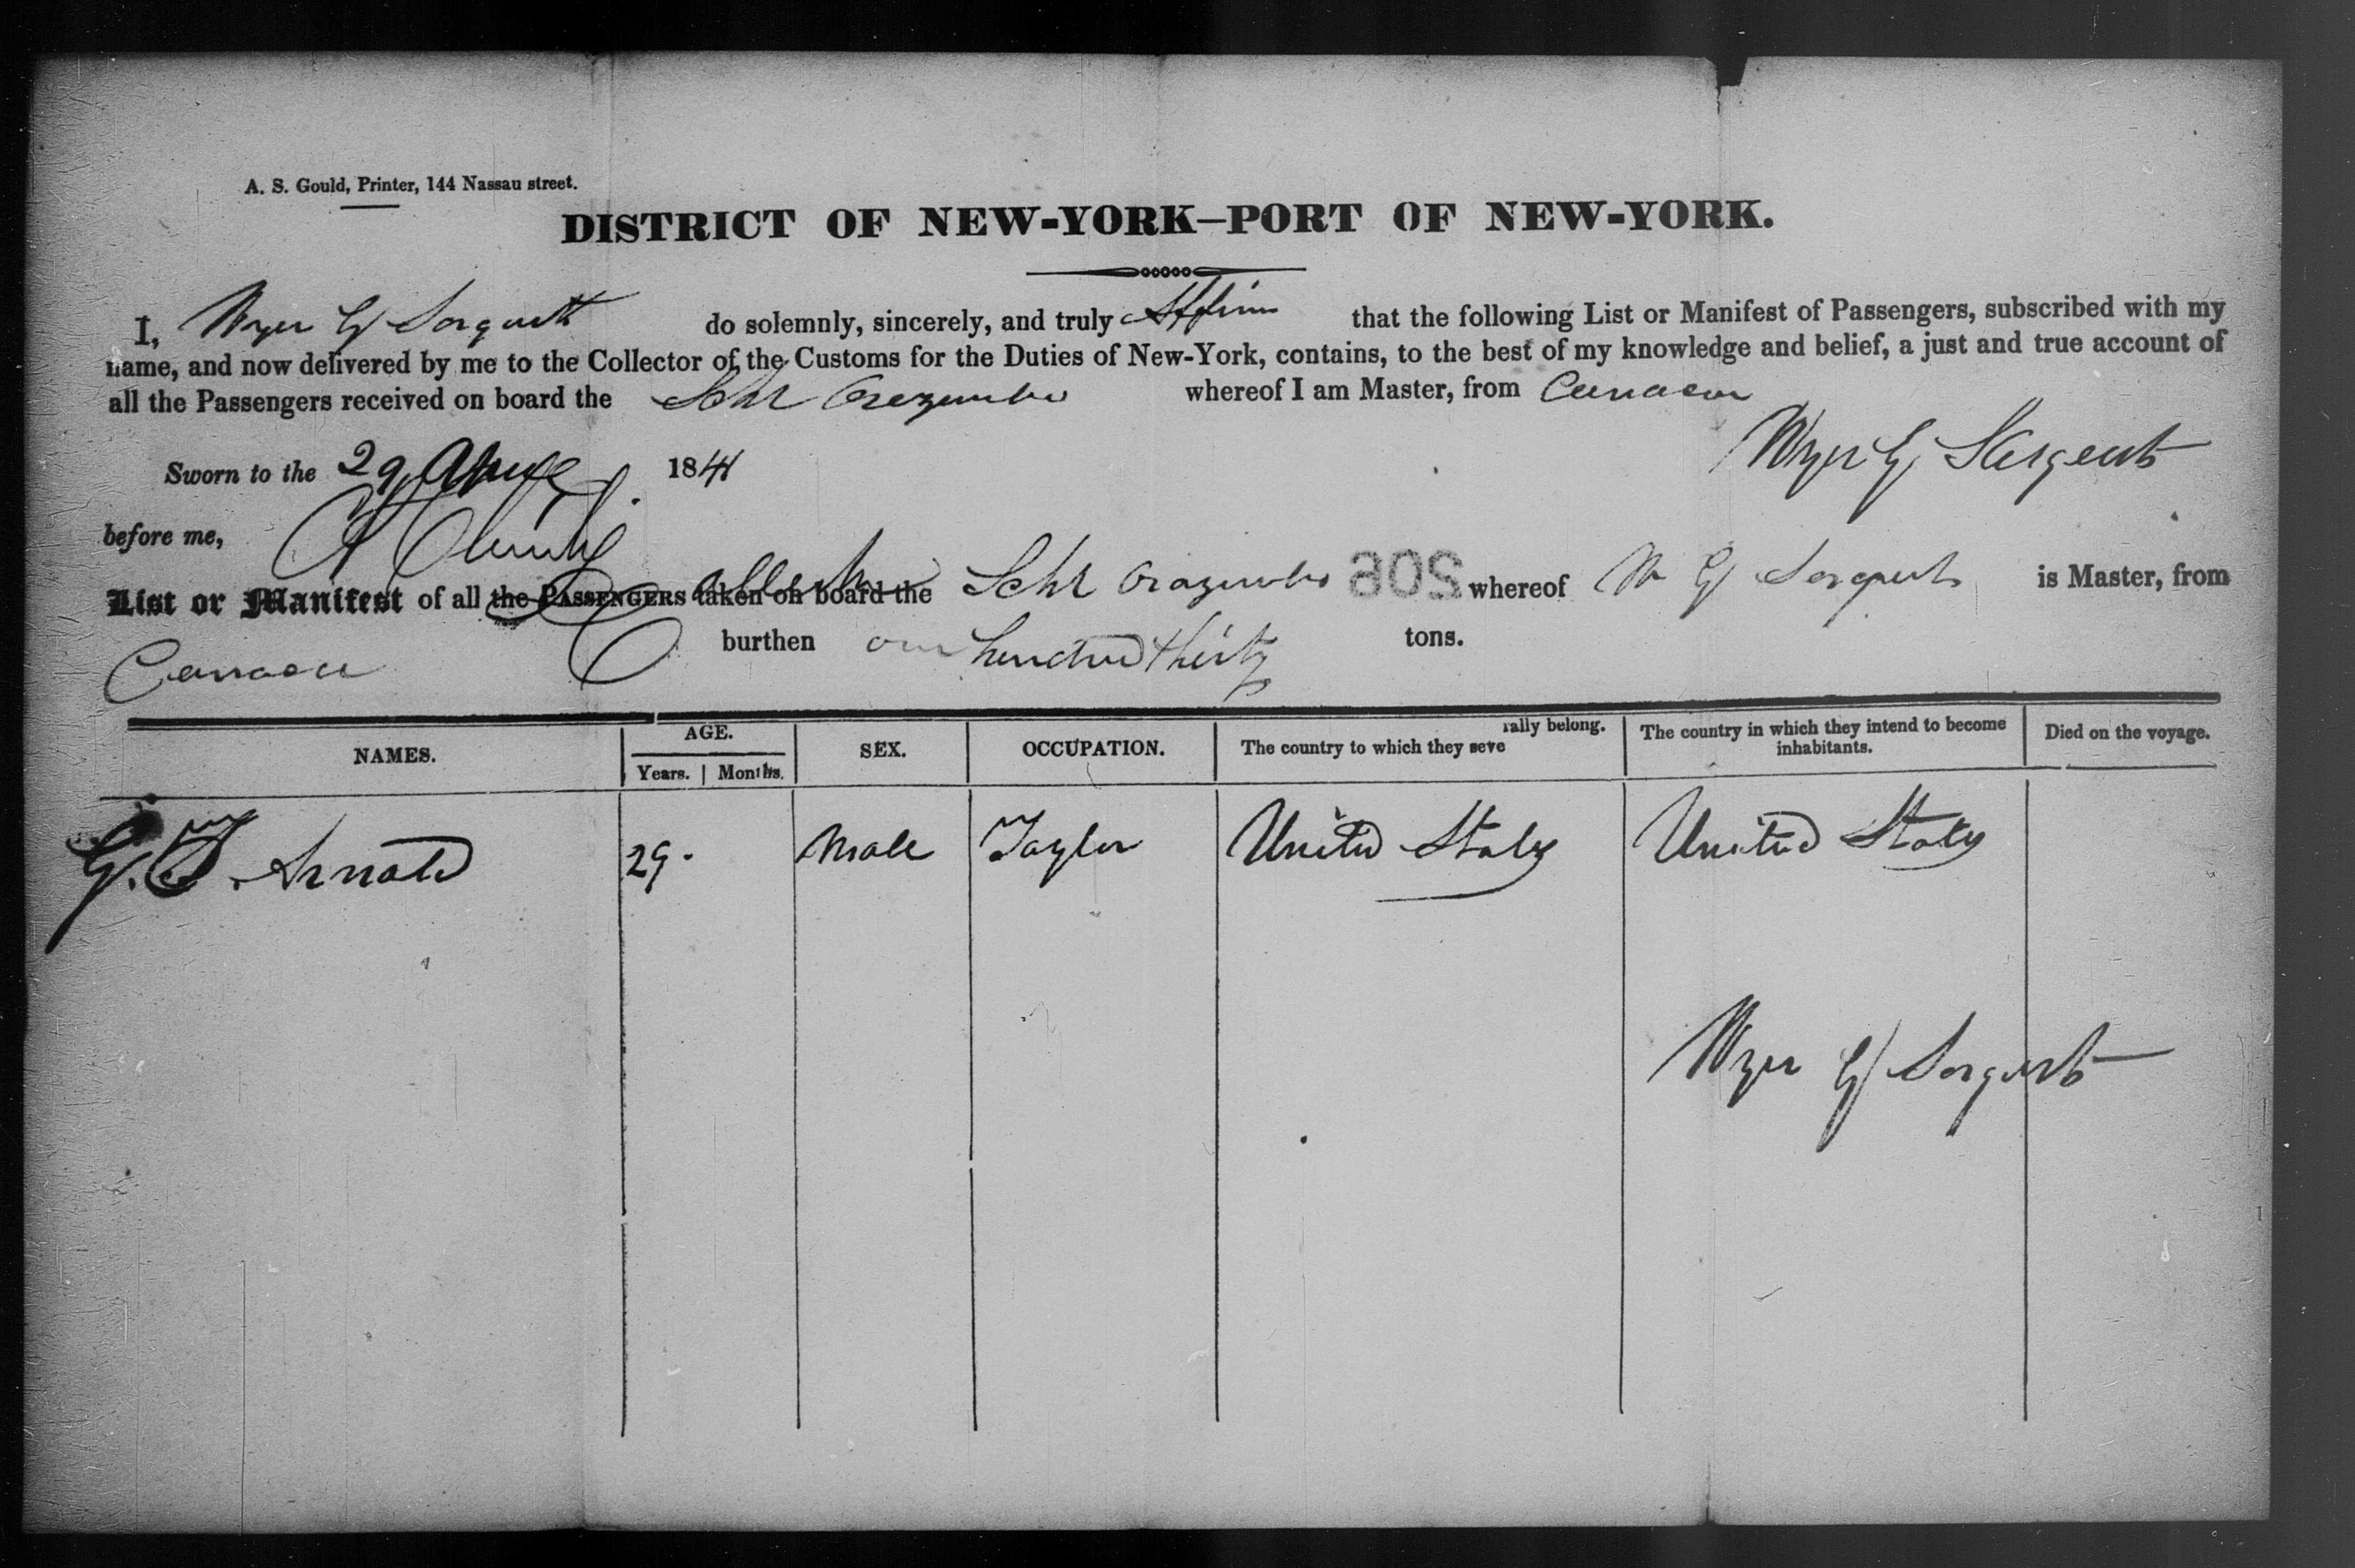 A. S. Gould, Printer, 144 Nassau street.
DISTRICT OF NEW-YORK—PORT OF NEW-YORK.
I, Wyer G Sargent do solemnly, sincerely, and truly Affirm that the following List or Manifest of Passengers, subscribed with my
name, and now delivered by me to the Collector of the Customs for the Duties of New-York, contains, to the best of my knowledge and belief, a just and true account of
all the Passengers received on board the Schr Orozimbo whereof I am Master, from
Wyer G Sargent
Sworn to the 29 April 1841
before me,
List or Manifest of all the PASSENGERS taken on board the Schr Orozimbo 802 whereof W G Sargent is Master, from
burthen one hundred thirty tons.
NAMES. AGE. Years. Months. SEX. OCCUPATION. The country to which they severally belong. The country in which they intend to become inhabitants. Died on the voyage.
G. T. Arnold 29. Male Taylor United States United States
Wyer G Sargent